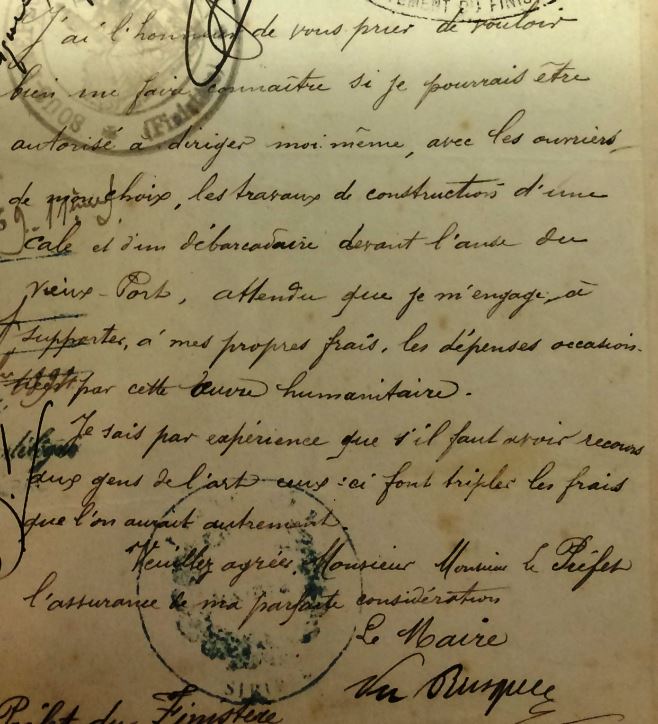 J'ai l'honneur de vous prier de vouloir
bien me faire connaître si je pourrais être
autorisé à diriger moi même, avec les ouvriers
de mon choix, les travaux de construction d'une
cale et d'un débarcadaire devant l'anse du
Vieux-Port, attendu que je m'engage à
supporter, à mes propres frais, les dépenses occasion-
par cette œuvre humanitaire.
Je sais par expérience que s'il faut avoir recours
aux gens de l'art ceux-ci font tripler les frais
que l'on aurait autrement.
Veuillez agréer, Monsieur Monsieur le Préfet
l'assurance de ma parfaite considération
Le Maire
Préfet du Finistère